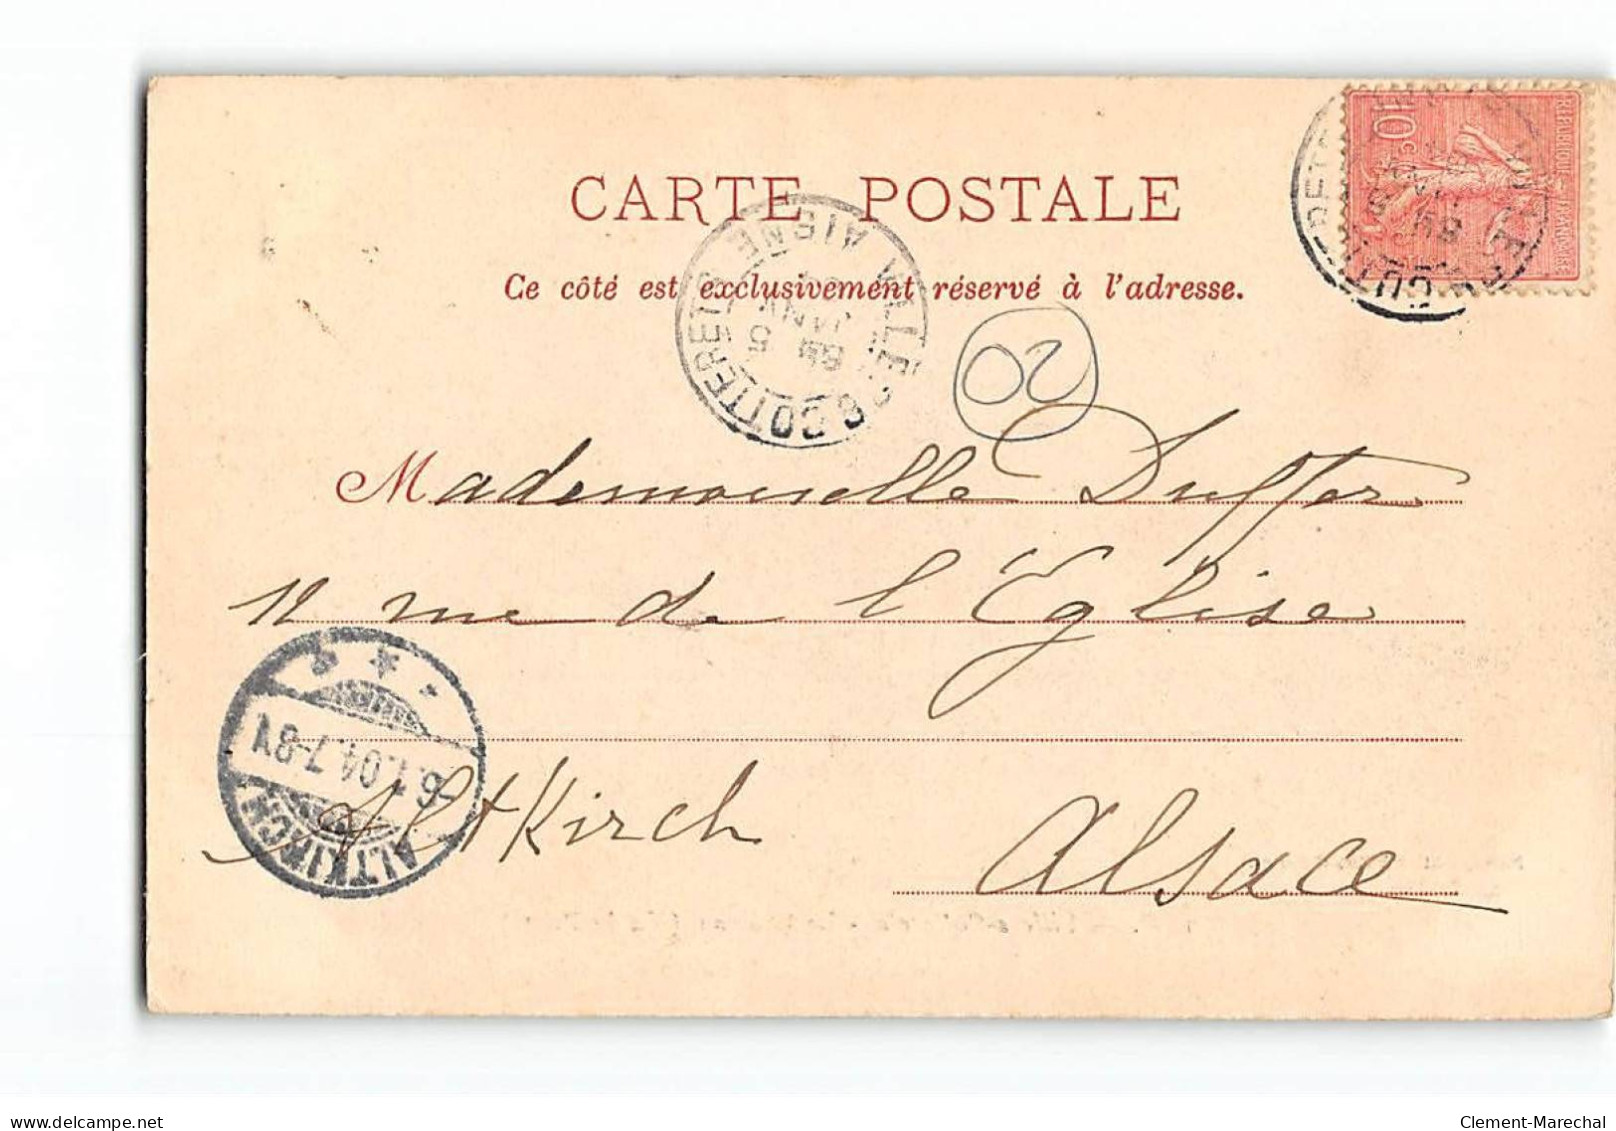 CARTE POSTALE
Ce côté est exclusivement réservé à l'adresse.
REPUBLIQUE FRANÇAISE
10 c
VILLERS COTTERETS
AISNE
5
JANV
04
02
Mademoiselle Duffer
12 rue de l'Église
Altkirch
Alsace
ALTKIRCH
6.1.04.7-8V
Clement-Marechal